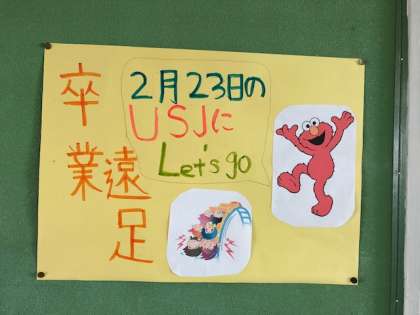 卒業遠足
2月23日の
USJに
Let's go